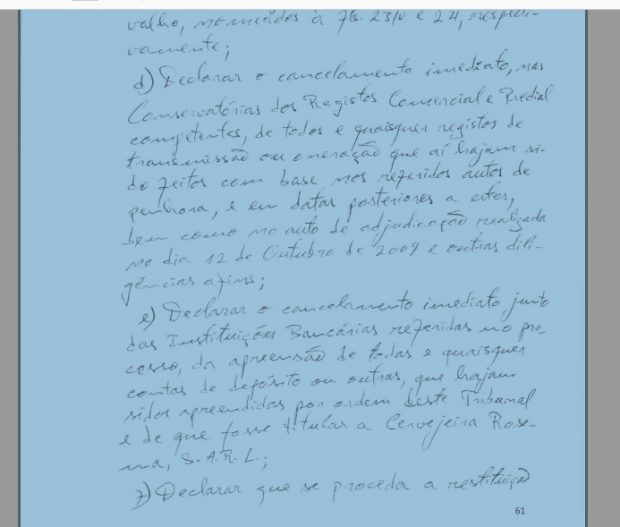 valho, nomeados à fls. 23/v e 24, respecti-
vamente;
d) Declarar o cancelamento imediato, nas
Conservatórias dos Registos Comercial e Predial
competentes, de todos e quaisquer registos de
transmissão ou oneração que aí hajam si-
do feitos com base nos referidos autos de
penhora, e em datas posteriores a estes,
bem como no auto de adjudicação realizada
no dia 12 de Outubro de 2009 e outras dili-
gências afins;
e) Declarar o cancelamento imediato junto
das Instituições Bancárias referidas no pro-
cesso, da apreensão de todas e quaisquer
contas de depósito ou outras, que hajam
sidos apreendidas por ordem deste Tribunal
e de que fosse titular a Cervejeira Rose-
ma, S.A.R.L.;
f) Declarar que se proceda a restituição
61